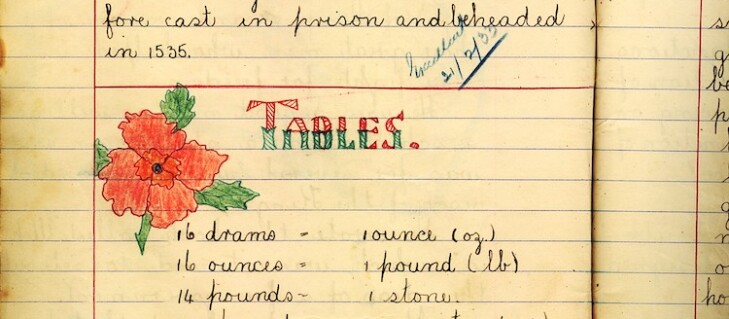 fore cast in prison and beheaded
in 1535.
Excellent
21/2/33
TABLES.
16 drams - 1 ounce (oz.)
16 ounces - 1 pound (lb)
14 pounds - 1 stone.